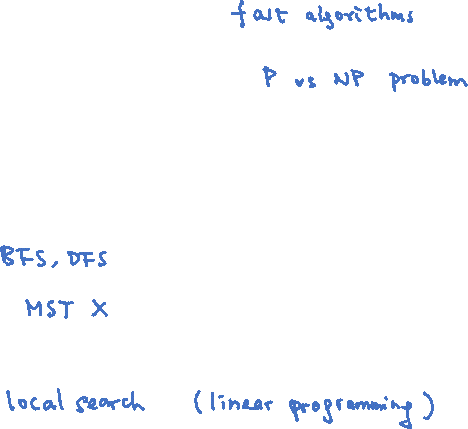 fast algorithms
P vs NP problem
BFS, DFS
MST X
local search (linear programming)